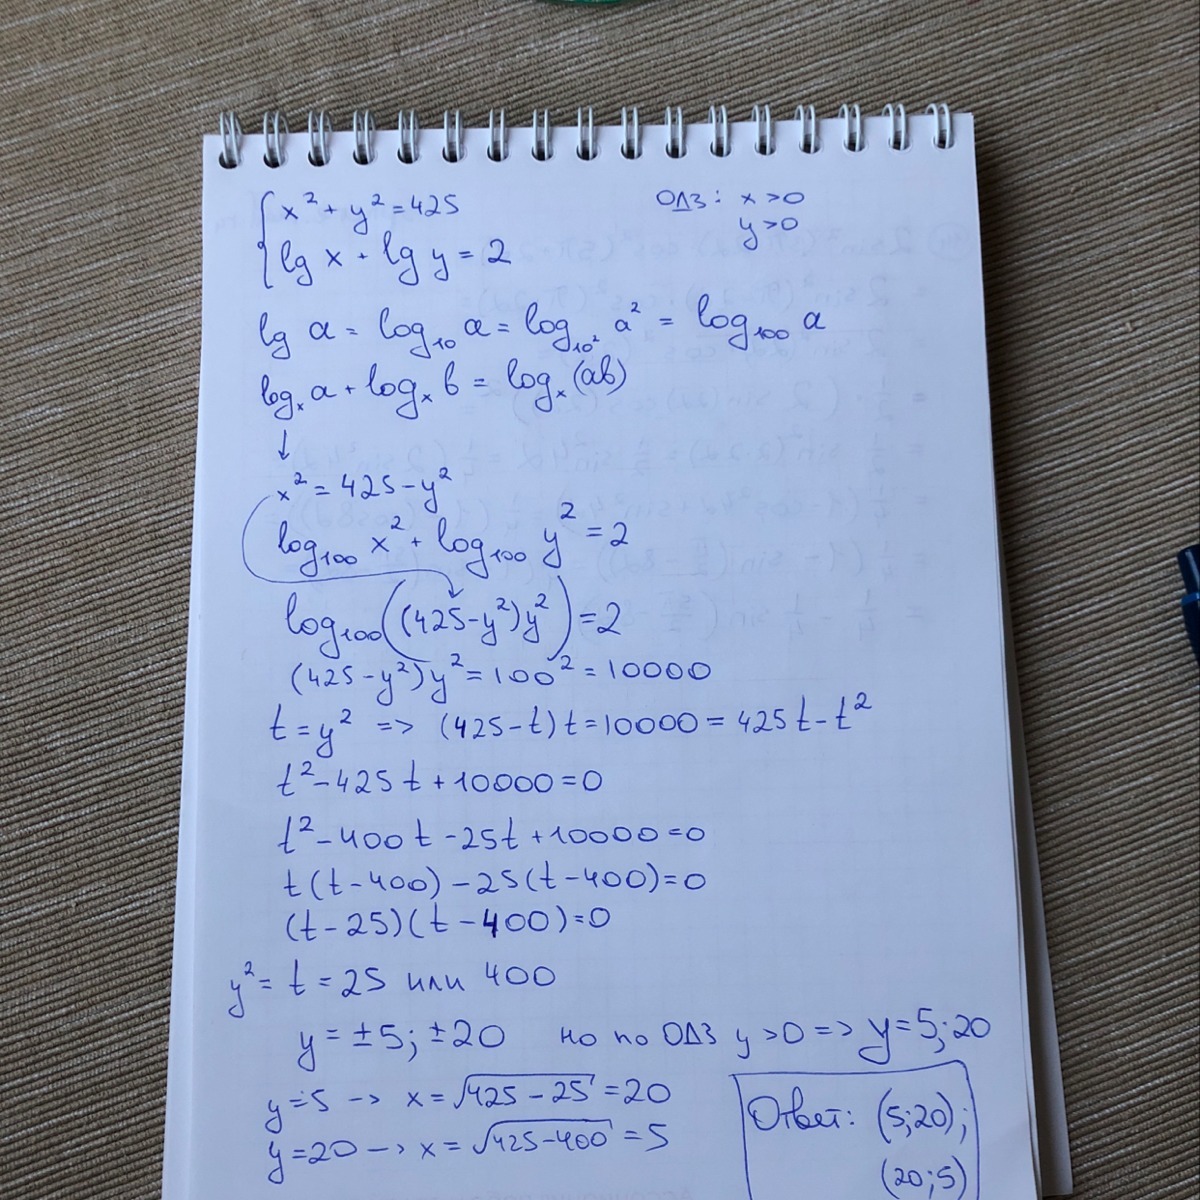 { x² + y² = 425
ОДЗ: x > 0
y > 0
lg x + lg y = 2
lg a = log₁₀ a = log₁₀² a² = log₁₀₀ a
logₓ a + logₓ b = logₓ (ab)
↓
x² = 425 - y²
log₁₀₀ x² + log₁₀₀ y² = 2
log₁₀₀ ((425 - y²) y²) = 2
(425 - y²) y² = 100² = 10000
t = y² => (425 - t) t = 10000 = 425t - t²
t² - 425t + 10000 = 0
t² - 400t - 25t + 10000 = 0
t(t - 400) - 25(t - 400) = 0
(t - 25)(t - 400) = 0
y² = t = 25 или 400
y = ±5; ±20 но по ОДЗ y > 0 => y = 5; 20
y = 5 -> x = √(425 - 25) = 20
y = 20 -> x = √(425 - 400) = 5
Ответ: (5; 20);
(20; 5)